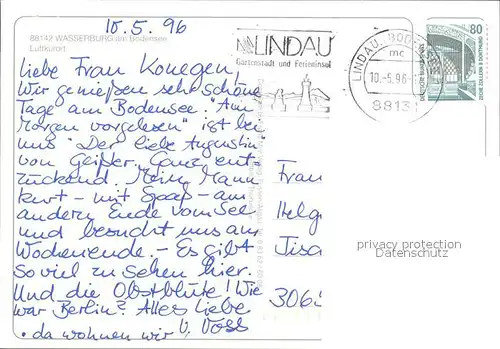 10.5.96
88142 WASSERBURG am Bodensee
Luftkurort
Liebe Frau Konegen,
Wir genießen sehr schöne
Tage am Bodensee. "Am
Morgen vorgelesen" ist bei
uns "Der liebe Augustin"
von Geißler. Ganz ent-
zückend. Mein Mann
kurt - mit Spaß - am
andern Ende vom See
und besucht uns am
Wochenende. - Es gibt
so viel zu sehen hier.
Und die Obstblüte! Wie
war Berlin? Alles Liebe
• da wohnen wir, U. Voss
LINDAU
Gartenstadt und Ferieninsel
LINDAU, BOD
mc
10.-5.96
8813
80
DEUTSCHE BUNDESPOST
ZECHE ZOLLERN II DORTMUND
Frau
Helg
Tisa
3065
privacy protection
Datenschutz